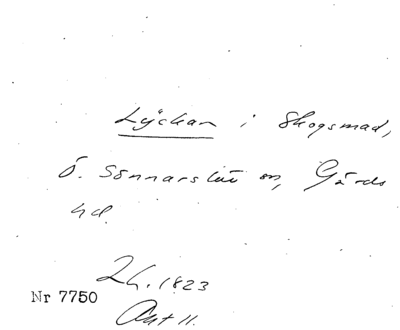 Lyckan i Skogsmad,
Ö. Sönnarslöv sn, Gärds
hd.
2h. 1823
Nr 7750
Akt 11.